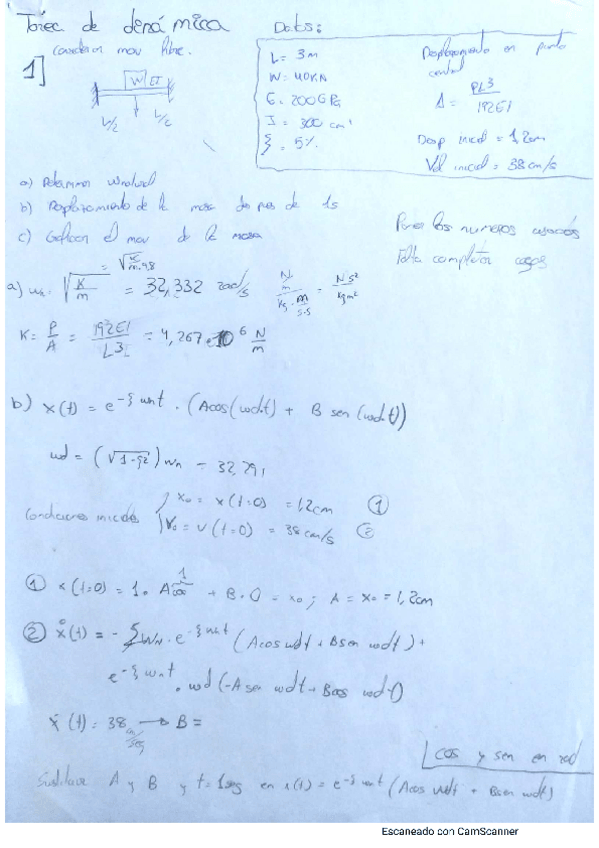 Tarea de dinámica
Datos:
mov libre.
1]
W EI
L/2 L/2
L = 3m
W = 40KN
E = 200GPa
I = 300 cm⁴
ξ = 5%
Desplazamiento en punto
central
Δ = PL³/192EI
Desp inicial = 1,2cm
Vel inicial = 38 cm/s
a) Determinar ωnatural
b) Desplazamiento de la masa después de 1s
c) Graficar el mov de la masa
Para los números usados
Falta completar cosas
a) ωn = √(K/m) = 32,332 rad/s
K = P/Δ = 192EI/L³ = 4,267 10⁶ N/m
b) x(t) = e^(-ξωnt) · (Acos(ωdt) + B sen(ωdt))
ωd = (√(1-ξ²)) ωn = 32,291
Condiciones iniciales
x₀ = x(t=0) = 1,2cm ①
V₀ = v(t=0) = 38cm/s ②
① x(t=0) = 1 · A + B·0 = x₀ ; A = x₀ = 1,2cm
② ẋ(t) = -ξωn · e^(-ξωnt) (Acos ωdt + Bsen ωdt) +
e^(-ξωnt) · ωd (-A sen ωdt + Bcos ωdt)
ẋ(t) = 38 cm/seg → B =
cos y sen en rad
Sustituir A y B y t=1seg en x(t) = e^(-ξωnt) (Acos ωdt + Bsen ωdt)
Escaneado con CamScanner